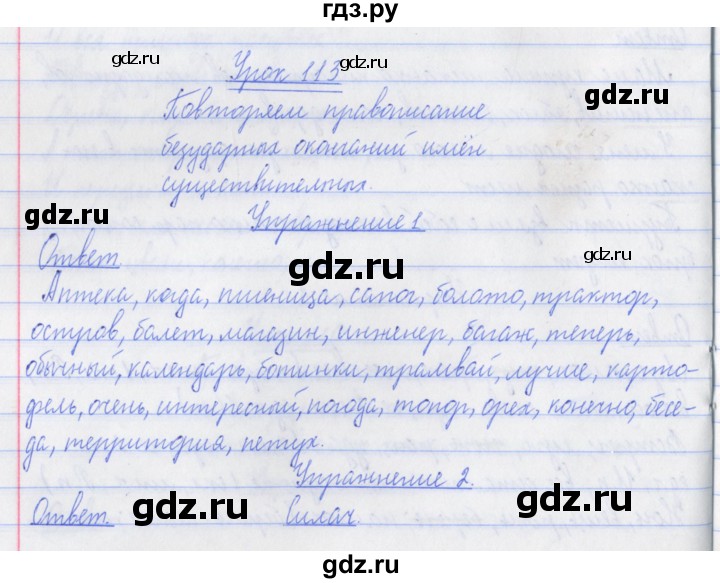 гдз.ру
Урок 113
gdz.ru
gdz.ru
Повторяем правописание
безударных окончаний имён
существительных.
gdz.ru
gdz.ru
Упражнение 1
gdz.ru
gdz.ru
Ответ
Аптека, когда, пшеница, сапог, болото, трактор,
остров, балет, магазин, инженер, багаж, теперь,
обычный, календарь, ботинки, трамвай, лучше, карто-
фель, очень, интересный, погода, топор, орех, конечно, бесе-
да, территория, петух.
Упражнение 2.
gdz.ru
gdz.ru
Ответ.
Силач.
gdz.ru